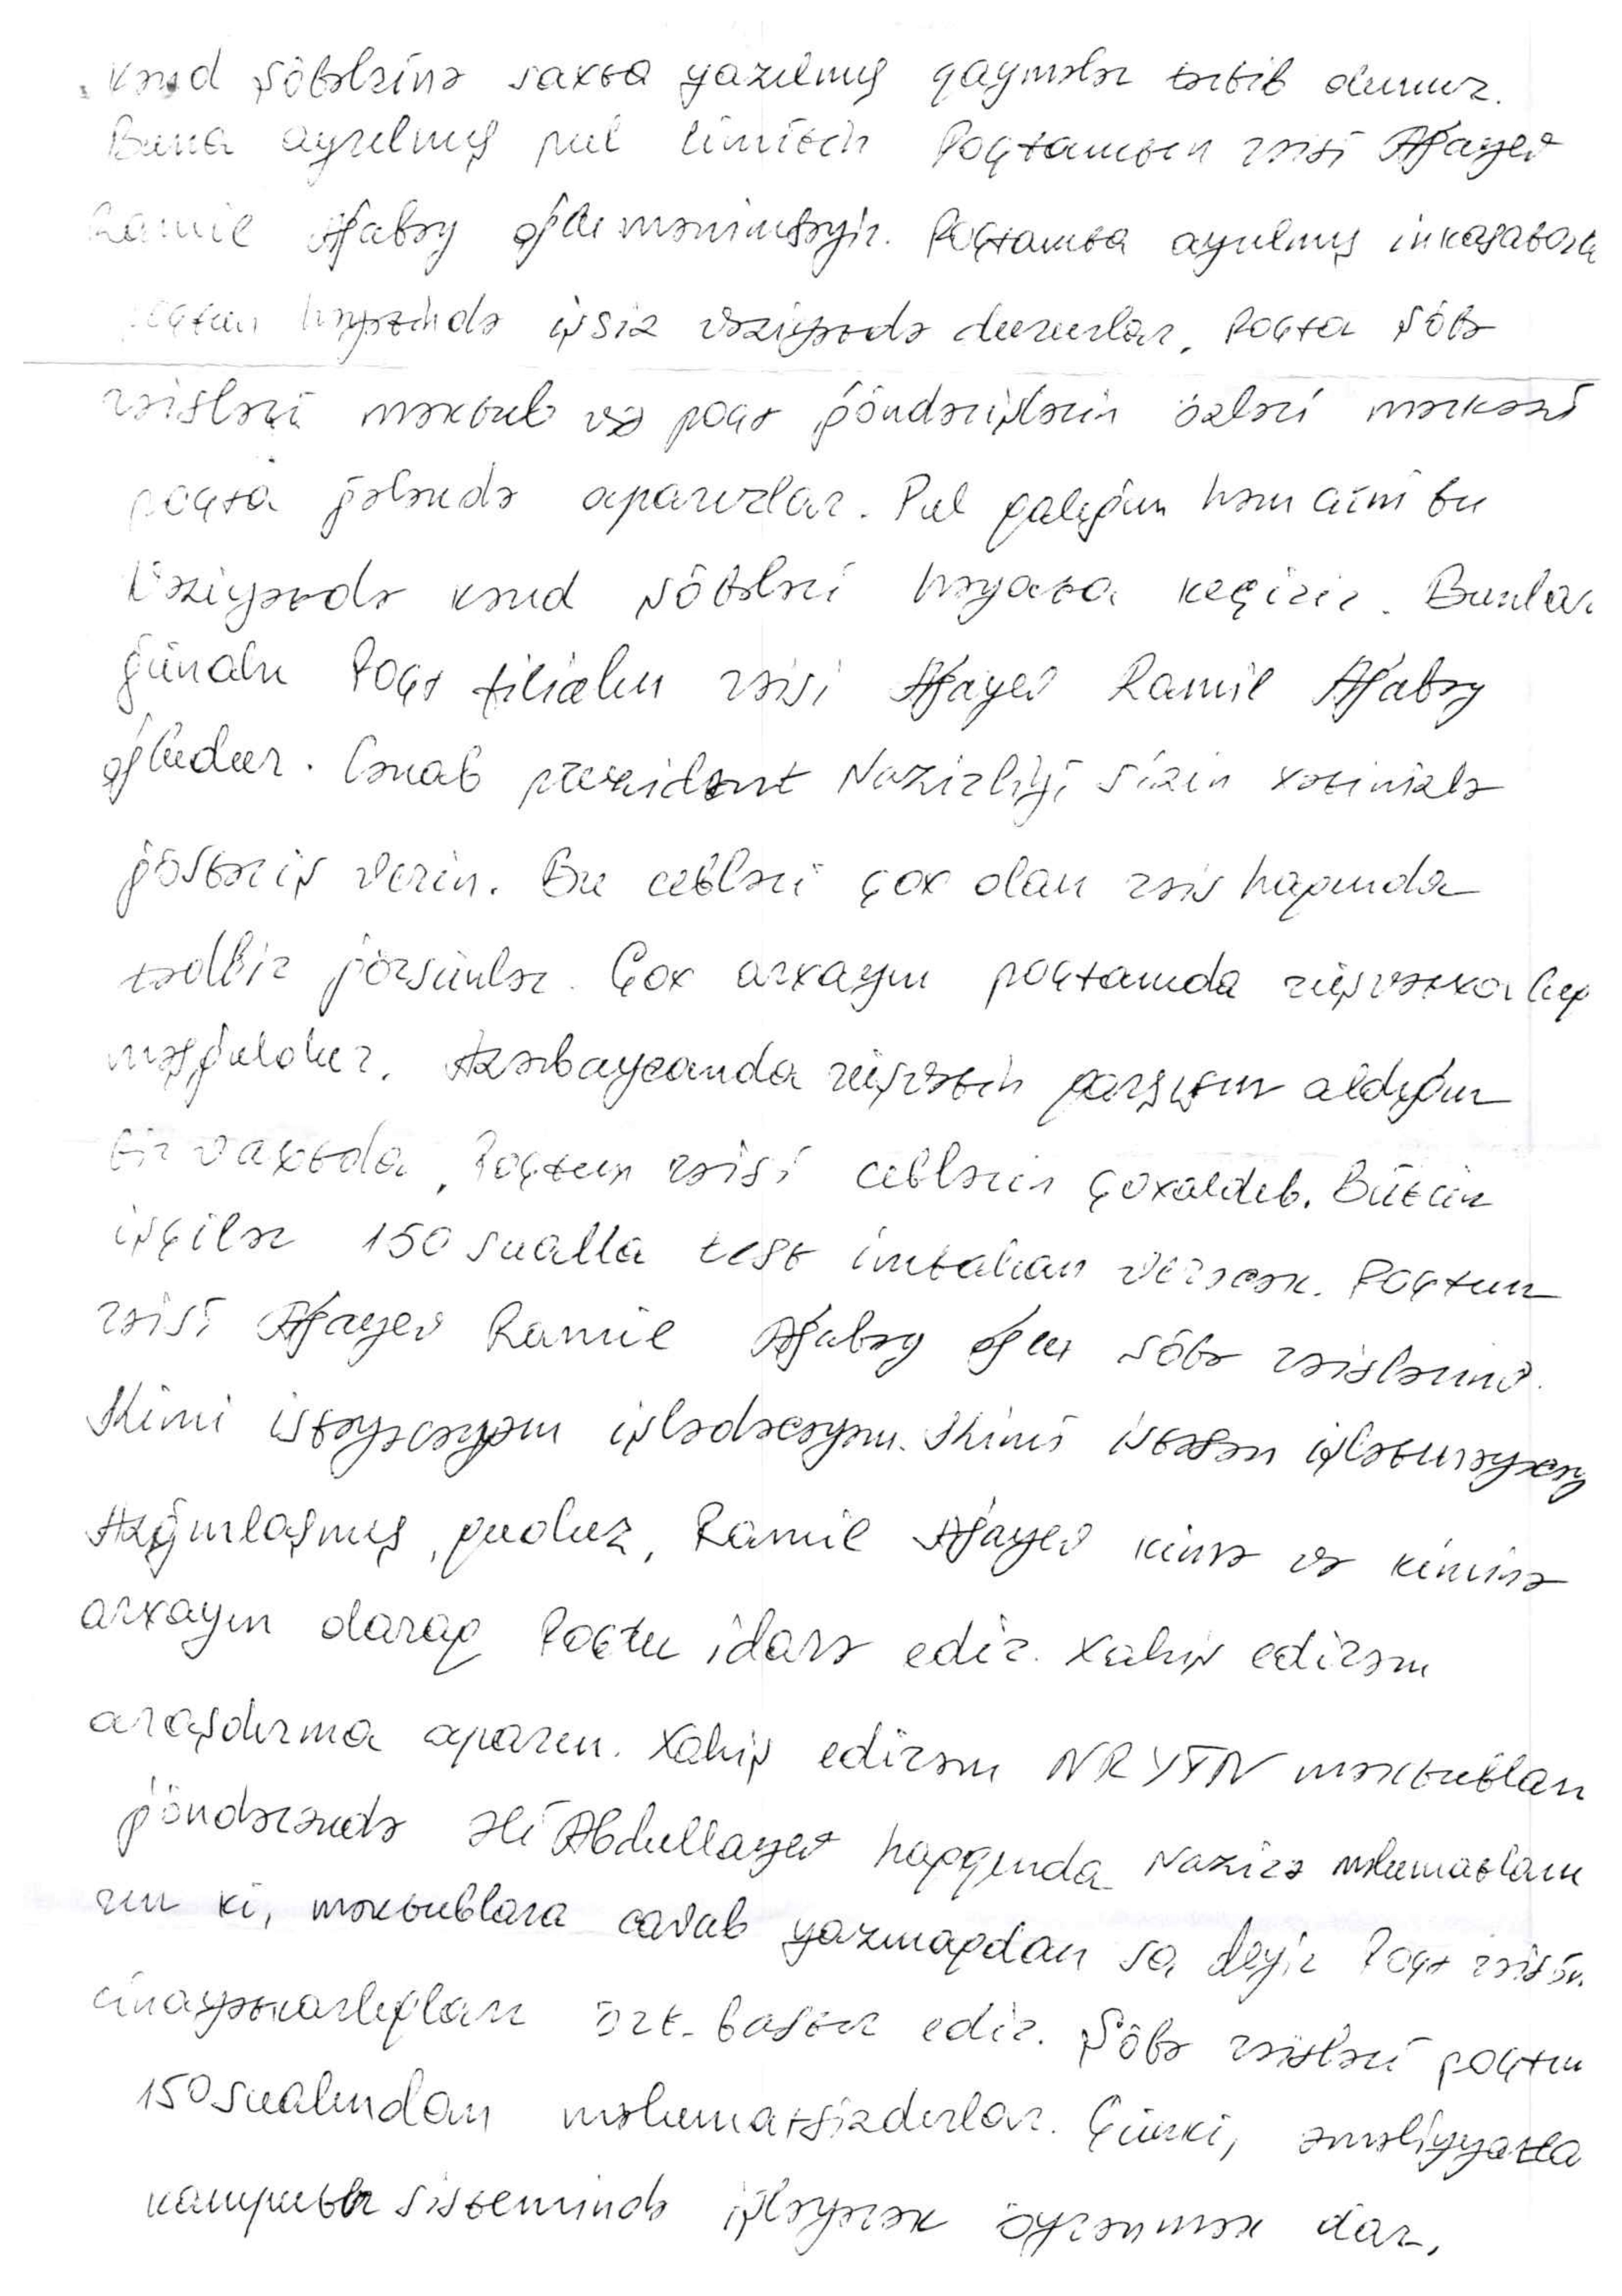 kənd şöbələrinə saxta yazılmış qaymələr tərtib olunur.
Buna ayrılmış pul limitin Poçtamtın rəisi Ağayev
Ramil Ağabəy oğlu mənimsəyir. Poçtamta ayrılmış inkasatorlar
poçtun həyətində işsiz vəziyətdə dururlar. Poçta şöbə
rəisləri məktub və poçt göndərişlərin özləri mərkəzi
poçta gələndə aparırlar. Pul qalığın həm cini bu
Vəziyətdə kənd şöbələri həyata keçirir. Bunlar
günahı Poçt filialın rəisi Ağayev Ramil Ağabəy
oğludur. Cənab prezident Nazirliyi sizin xətinizlə
göstəriş verin. Bu cebləri çox olan rəis haqında
tədbir görsünlər. Çox arxayın poçtamda rüşvətxorluq
məşğuldur. Azərbaycanda rüşvətin qarşısın aldığın
bir vaxtda, Poçtun rəisi ceblərin çoxaldıb. Bütün
işçilər 150 sualla test imtahan verəcək. Poçtun
rəisi Ağayev Ramil Ağabəy oğlu şöbə rəislərinə.
Kimi istəyəcəyəm işlədəcəyəm. Kimi istəsən işlətməyəcəy
Azğınlaşmış, quduz, Ramil Ağayev kimə və kiminə
arxayın olaraq Poçtu idarə edir. Xahiş edirəm
araşdırma aparın. Xahiş edirəm NRYTN məktubları
göndərəndə Əli Abdullayev haqqında Nazirə məlumatlanı
rın ki, məktublara cavab yazmaqdan sa deyir Poçt rəisin
cinayətkarlıqları ört-basdır edir. Şöbə rəisləri poçtun
150 sualından məlumatsizdırlar. Çünki, əməliyyatla
kamputer sistemində işləyərək öyrənmək olar.